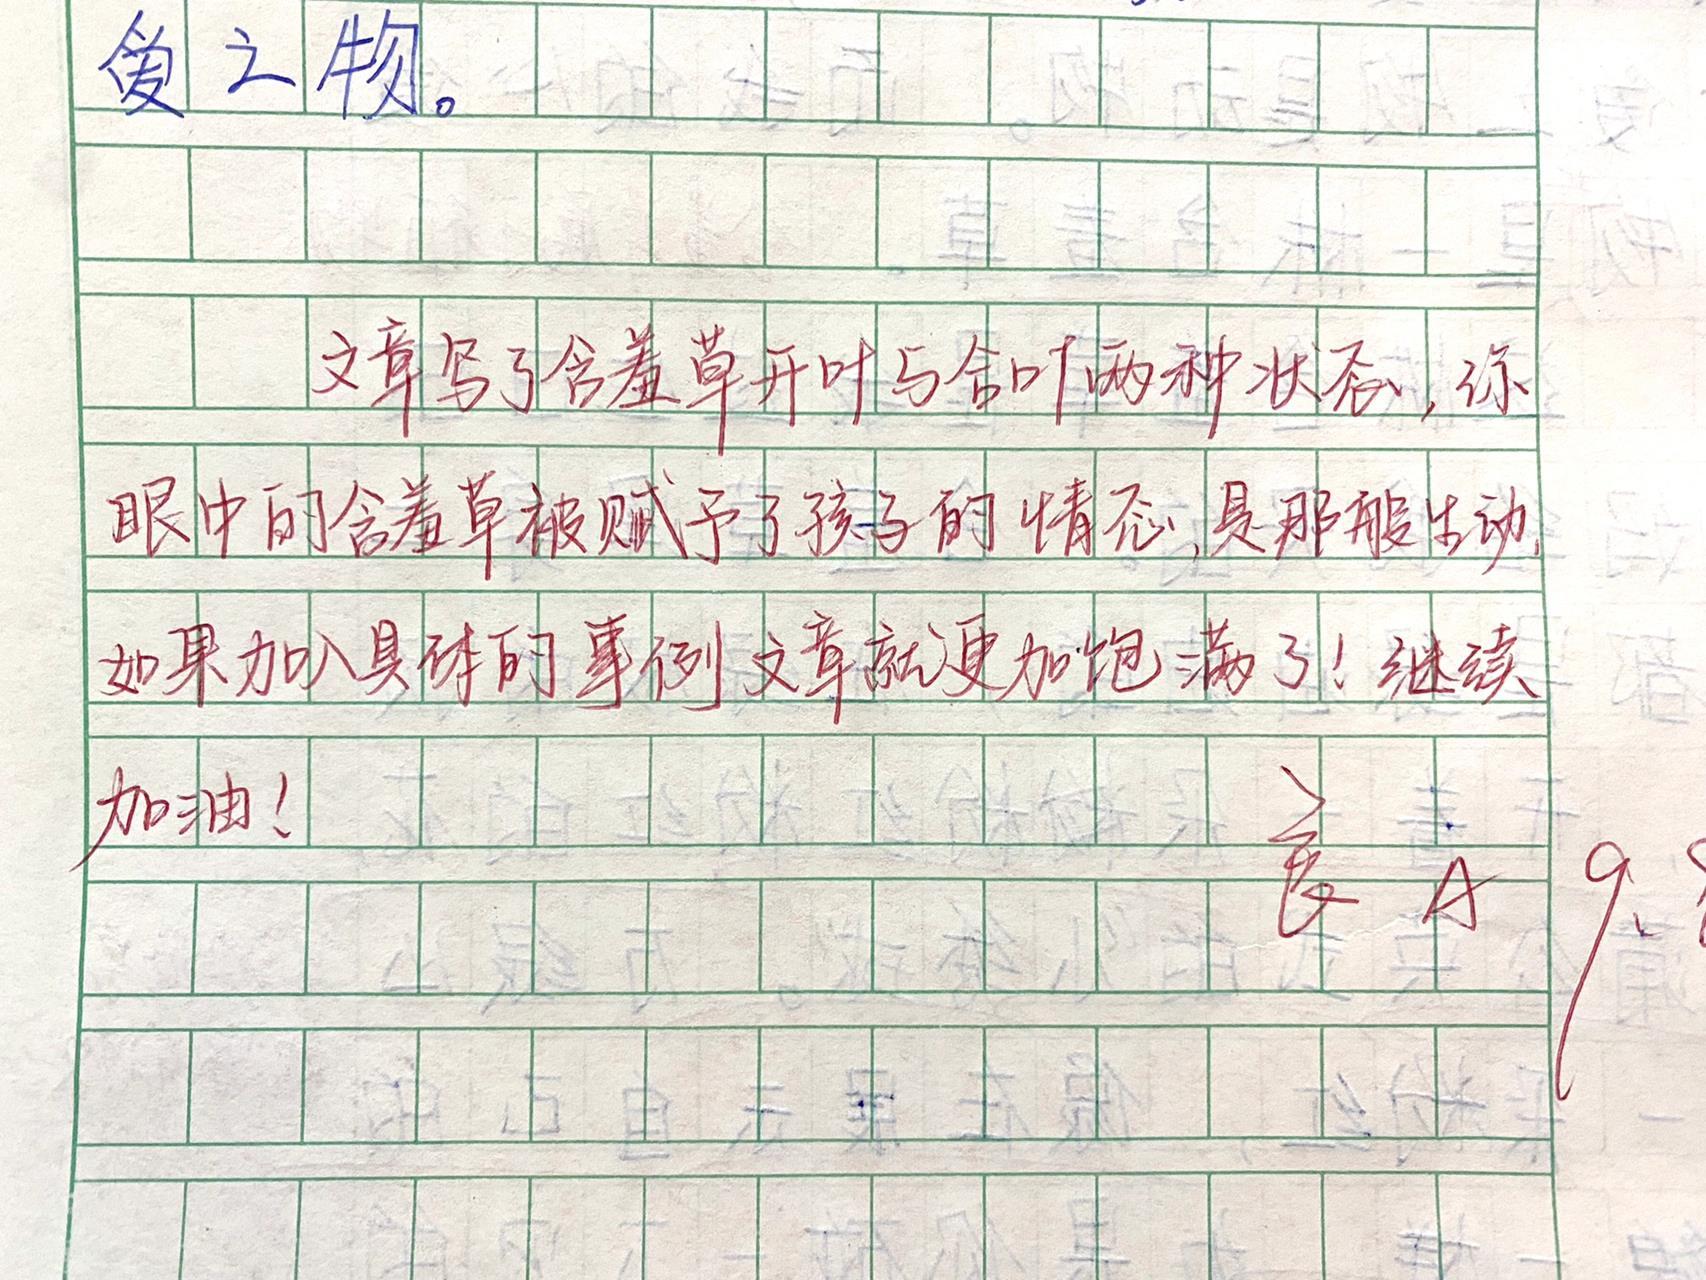 爱之物。
文章写了含羞草开叶与合叶两种状态,你
眼中的含羞草被赋予了孩子的情态,是那般生动,
如果加入具体的事例文章就更加饱满了!继续
加油!
A